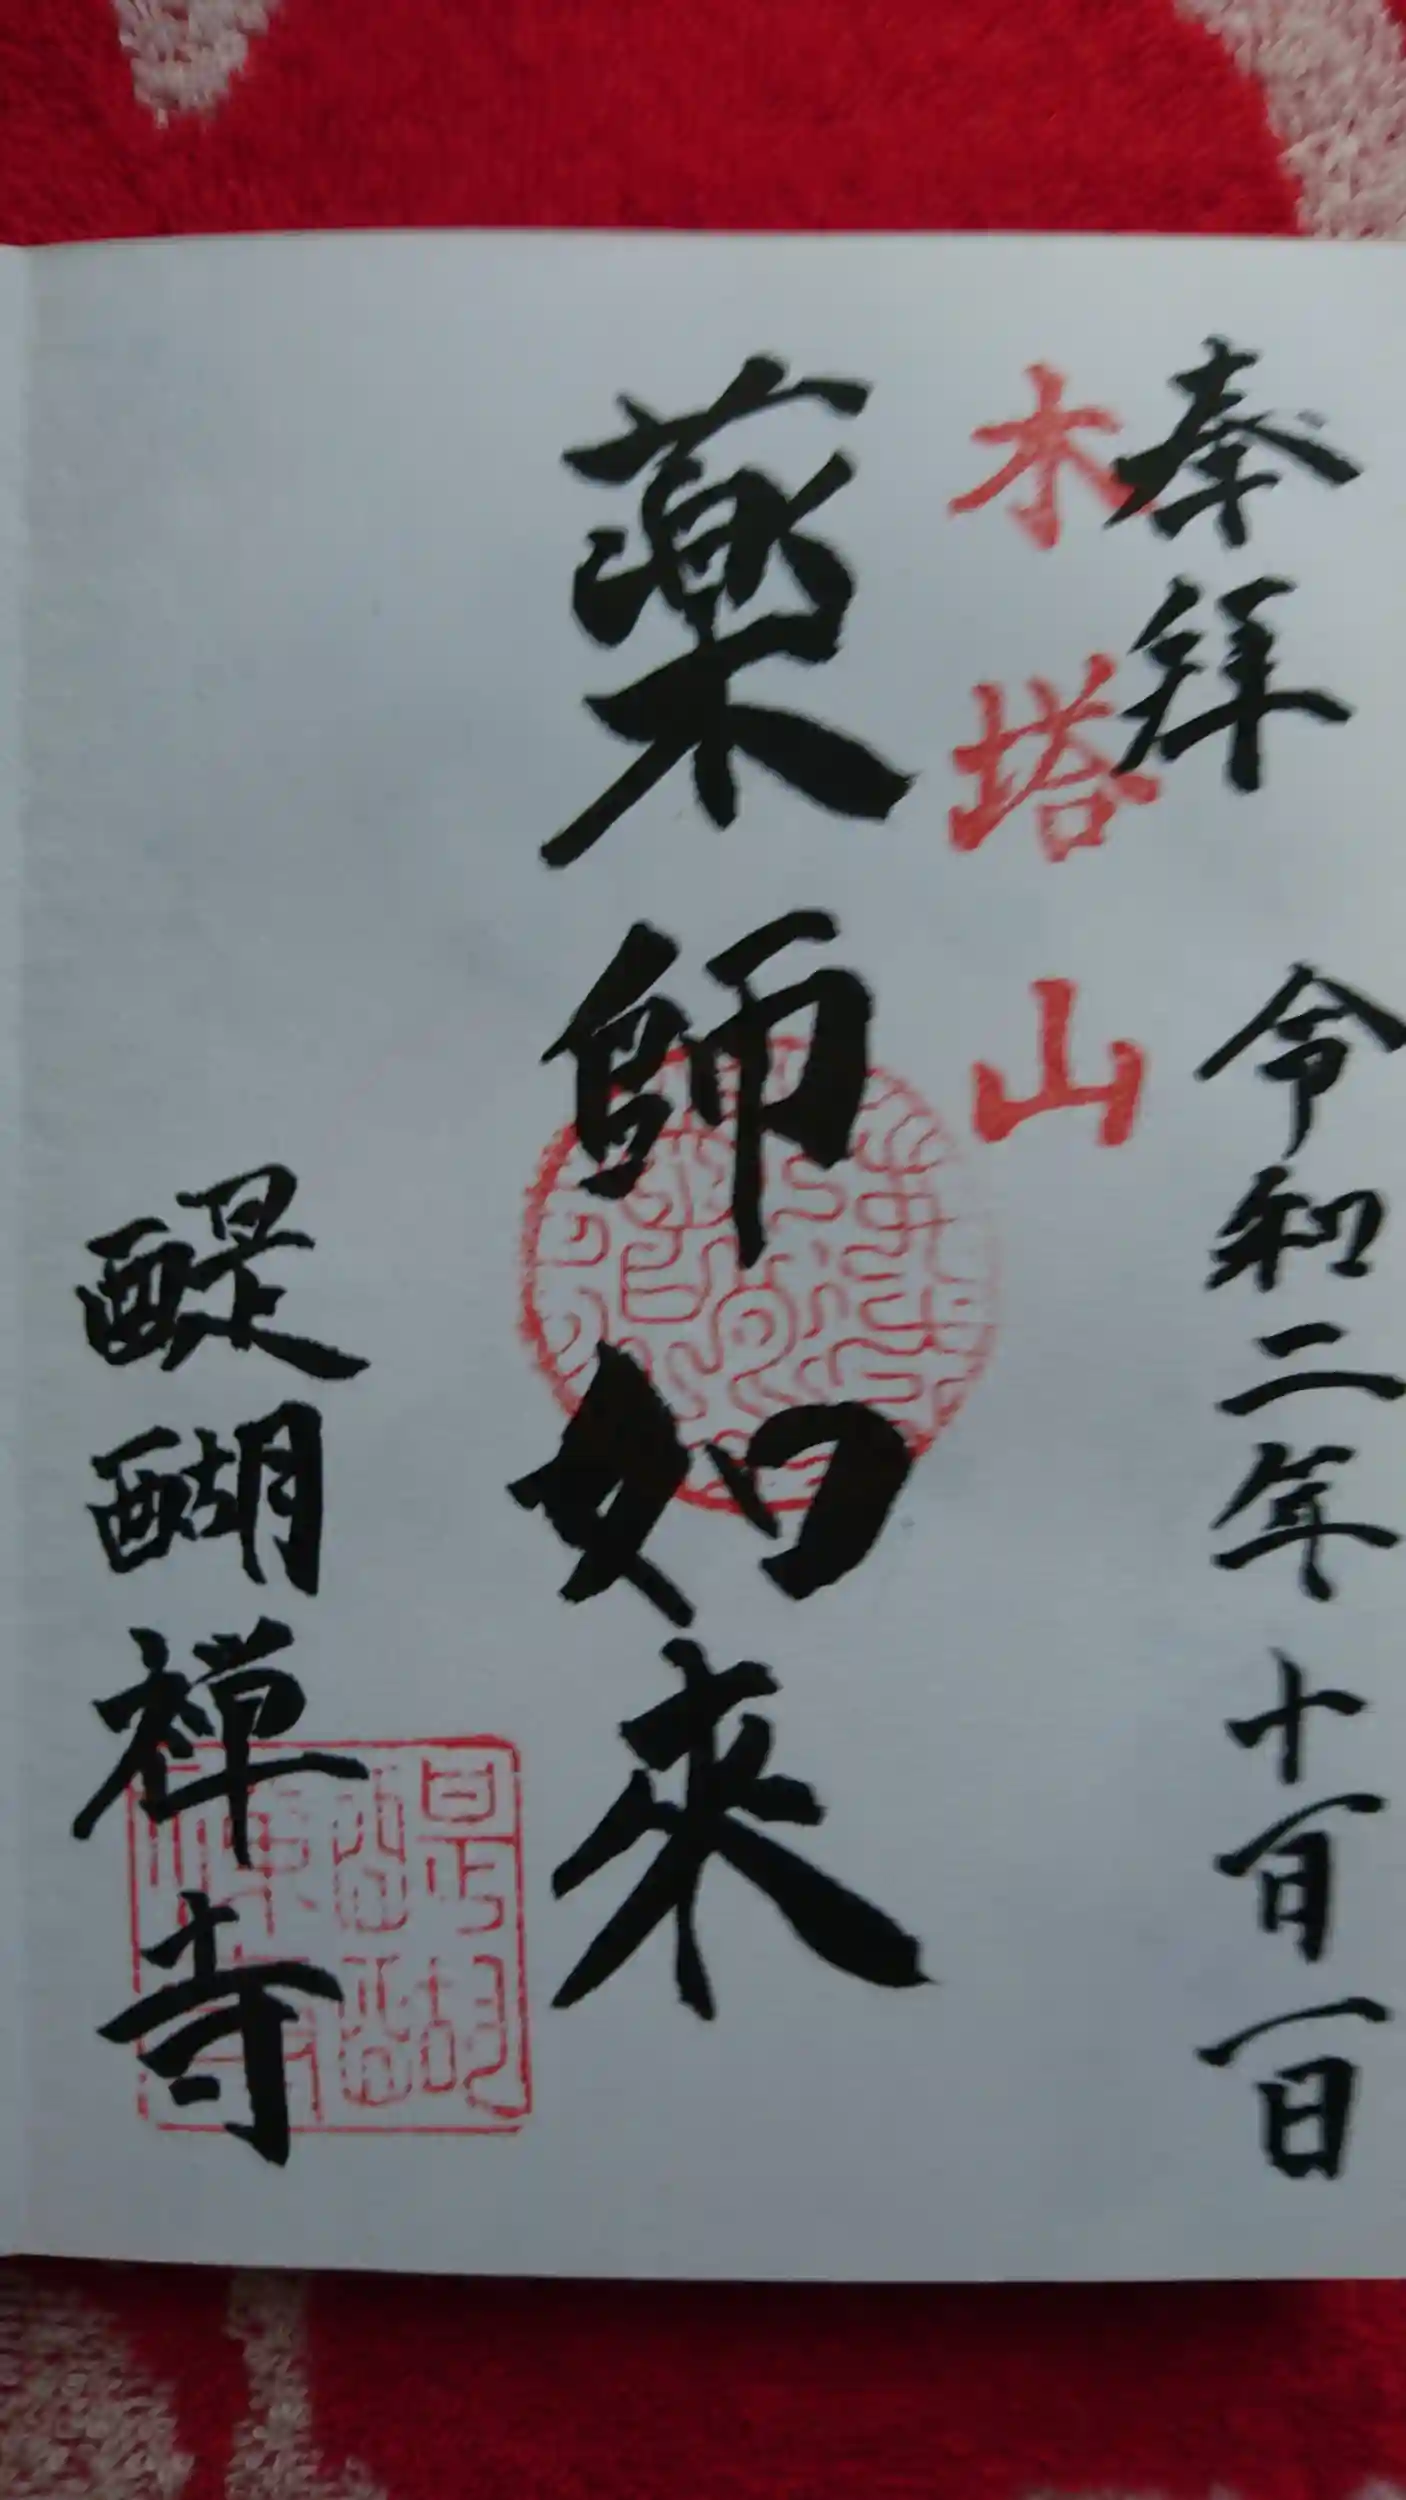 奉拝 令和二年十一月一日
木塔山
薬師如来
醍醐禅寺